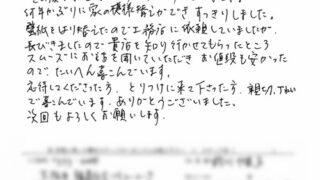 何年かぶりに家の模様替えができ すっきりしました。
壁紙をはり替えしたので工務店に依頼していましたが、
長びきましたので貴店を知り行かせてもらったところ
スムーズにお話を聞いていただき お値段も安かった
ので たいへん喜こんでいます。
応待してくださった方、とりつけに来て下さった方、親切、丁ねい
で喜こんでいます。ありがとうございました。
次回もよろしくお願いします。